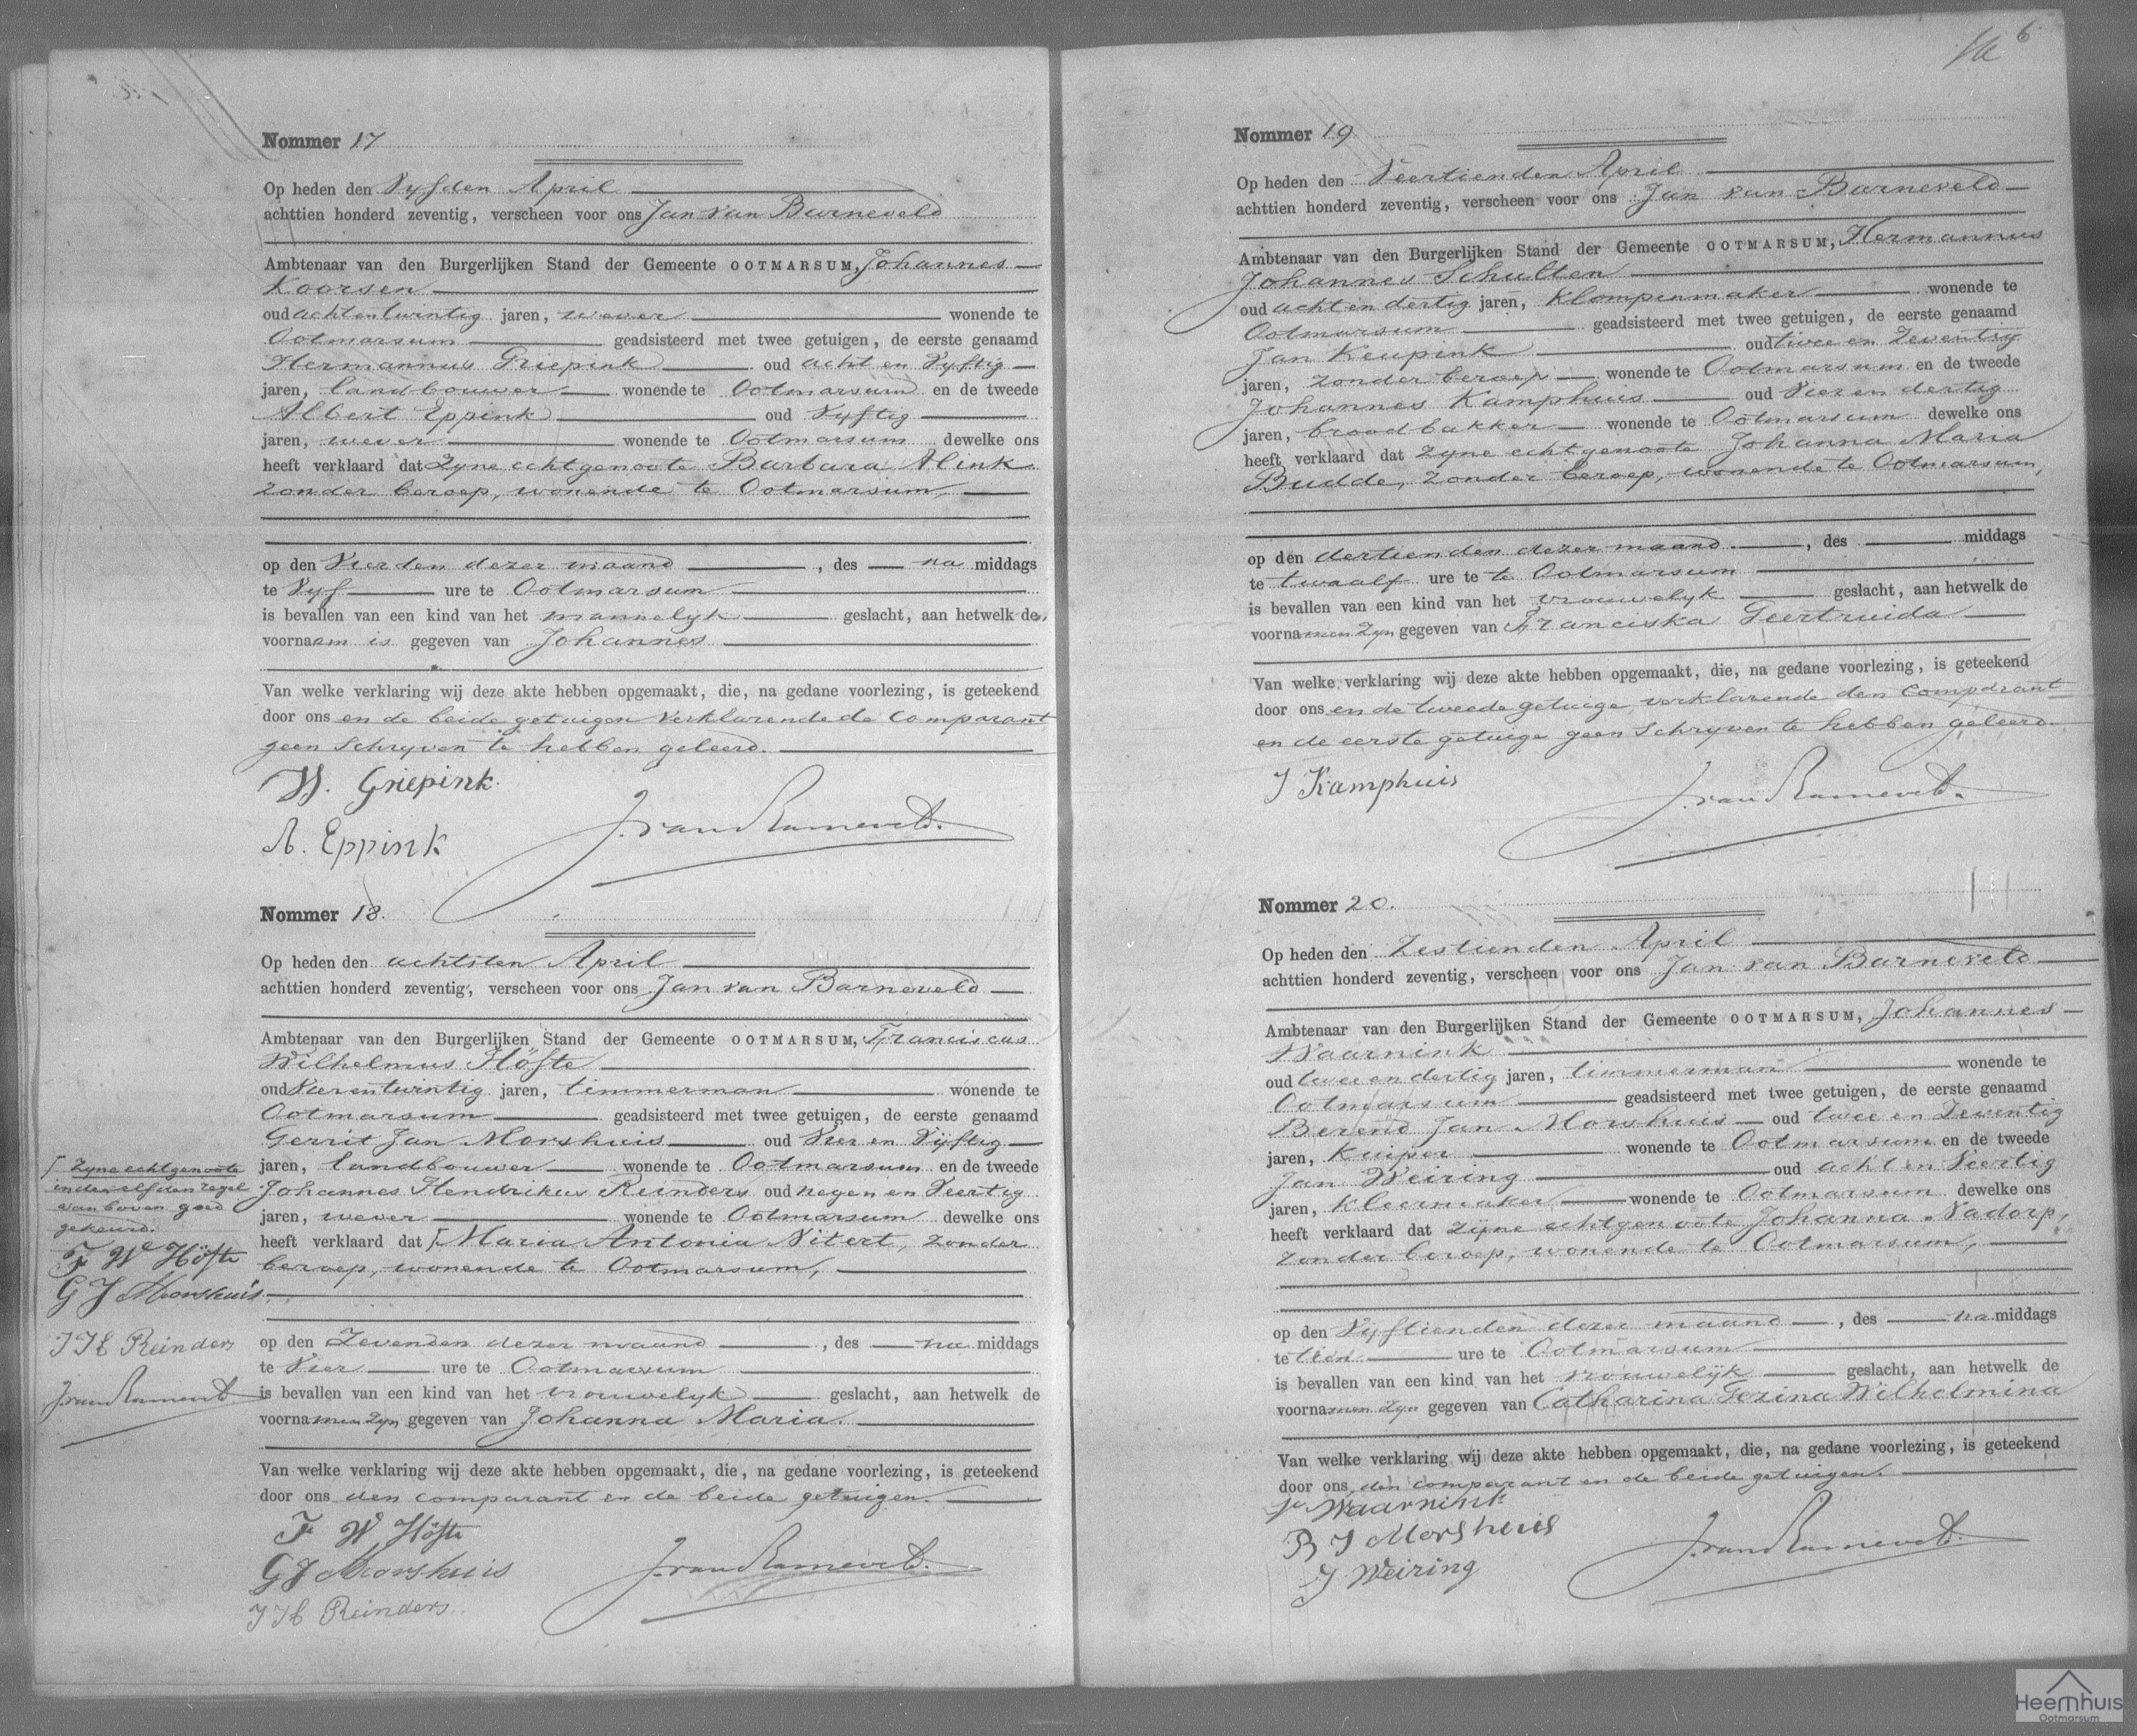 Nommer 17
Op heden den Vyfden April
achttien honderd zeventig, verscheen voor ons Jan van Barneveld
Ambtenaar van den Burgerlijken Stand der Gemeente OOTMARSUM, Johannes
Koorsen
oud achtentwintig jaren, wever wonende te
Ootmarsum geadsisteerd met twee getuigen, de eerste genaamd
Hermannus Griepink oud acht en Vyftig
jaren, landbouwer wonende te Ootmarsum en de tweede
Albert Eppink oud Vyftig
jaren, wever wonende te Ootmarsum dewelke ons
heeft verklaard dat zyne echtgenoote Barbara Alink
zonder beroep, wonende te Ootmarsum,
op den Vierden dezer maand, des na middags
te Vyf ure te Ootmarsum
is bevallen van een kind van het mannelyk geslacht, aan hetwelk de
voornaam is gegeven van Johannes
Van welke verklaring wij deze akte hebben opgemaakt, die, na gedane voorlezing, is geteekend
door ons en de beide getuigen verklarende de comparant
geen schryven te hebben geleerd.
H. Griepink
A. Eppink
J. van Barneveld.
Nommer 18.
Op heden den achtsten April
achttien honderd zeventig, verscheen voor ons Jan van Barneveld
Ambtenaar van den Burgerlijken Stand der Gemeente OOTMARSUM, Franciscus
Wilhelmus Höfte
oud Vierentwintig jaren, timmerman wonende te
Ootmarsum geadsisteerd met twee getuigen, de eerste genaamd
Gerrit Jan Morshuis oud Vier en Vijftig
jaren, landbouwer wonende te Ootmarsum en de tweede
Johannes Hendrikus Reinders oud negen en Veertig
jaren, wever wonende te Ootmarsum dewelke ons
heeft verklaard dat Maria Antonia Nitert, zonder
beroep, wonende te Ootmarsum,
op den Zevenden dezer maand, des na middags
te Vier ure te Ootmarsum
is bevallen van een kind van het vrouwelyk geslacht, aan hetwelk de
voornamen zyn gegeven van Johanna Maria.
Van welke verklaring wij deze akte hebben opgemaakt, die, na gedane voorlezing, is geteekend
door ons den comparant en de beide getuigen.
F W Höfte
G J Morshuis
J H Reinders
J. van Barneveld.
Zyne echtgenoote
in den elfden regel
van boven goed
gekeurd.
F W Höfte
G J Morshuis
J H Reinders
J van Barneveld
6
Nommer 19
Op heden den Veertienden April
achttien honderd zeventig, verscheen voor ons Jan van Barneveld
Ambtenaar van den Burgerlijken Stand der Gemeente OOTMARSUM, Hermannus
Johannes Schulten
oud acht en dertig jaren, Klompenmaker wonende te
Ootmarsum geadsisteerd met twee getuigen, de eerste genaamd
Jan Keupink oud twee en Zeventig
jaren, zonder beroep wonende te Ootmarsum en de tweede
Johannes Kamphuis oud Vier en dertig
jaren, broodbakker wonende te Ootmarsum dewelke ons
heeft verklaard dat zyne echtgenoote Johanna Maria
Budde, zonder beroep, wonende te Ootmarsum,
op den dertienden dezer maand, des middags
te twaalf ure te te Ootmarsum
is bevallen van een kind van het vrouwelyk geslacht, aan hetwelk de
voornamen zyn gegeven van Franciska Geertruida
Van welke verklaring wij deze akte hebben opgemaakt, die, na gedane voorlezing, is geteekend
door ons en de tweede getuige, verklarende den comparant
en de eerste getuige geen schryven te hebben geleerd.
J Kamphuis
J. van Barneveld.
Nommer 20.
Op heden den Zestienden April
achttien honderd zeventig, verscheen voor ons Jan van Barneveld
Ambtenaar van den Burgerlijken Stand der Gemeente OOTMARSUM, Johannes
Waarnink
oud twee en dertig jaren, timmerman wonende te
Ootmarsum geadsisteerd met twee getuigen, de eerste genaamd
Berend Jan Morshuis oud twee en Zeventig
jaren, Kuiper wonende te Ootmarsum en de tweede
Jan Weiring oud acht en Veertig
jaren, Kleermaker wonende te Ootmarsum dewelke ons
heeft verklaard dat zijne echtgenoote Johanna Nadorp,
zonder beroep, wonende te Ootmarsum,
op den Vyftienden dezer maand, des na middags
te tien ure te Ootmarsum
is bevallen van een kind van het vrouwelijk geslacht, aan hetwelk de
voornamen zyn gegeven van Catharina Gezina Wilhelmina
Van welke verklaring wij deze akte hebben opgemaakt, die, na gedane voorlezing, is geteekend
door ons, den comparant en de beide getuigen.
Waarnink
B J Morshuis
J Weiring
J. van Barneveld.
Heemhuis
Ootmarsum